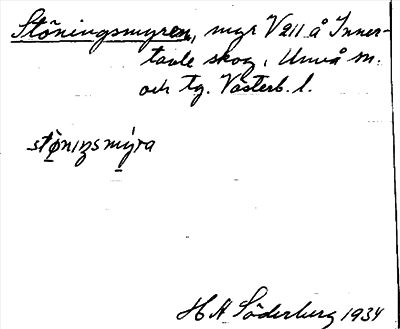 Stöningsmyren, myr V 211 å Inner-
tavle skog, Umeå sn.
och tg. Västerb. l.
stöniŋsmýra
H A Söderberg 1934